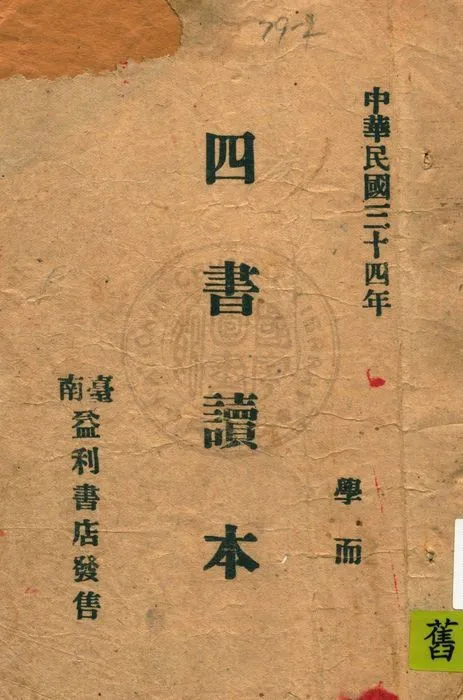 79-2
中華民國三十四年
學而
四書讀本
臺南
益利書店發售
舊